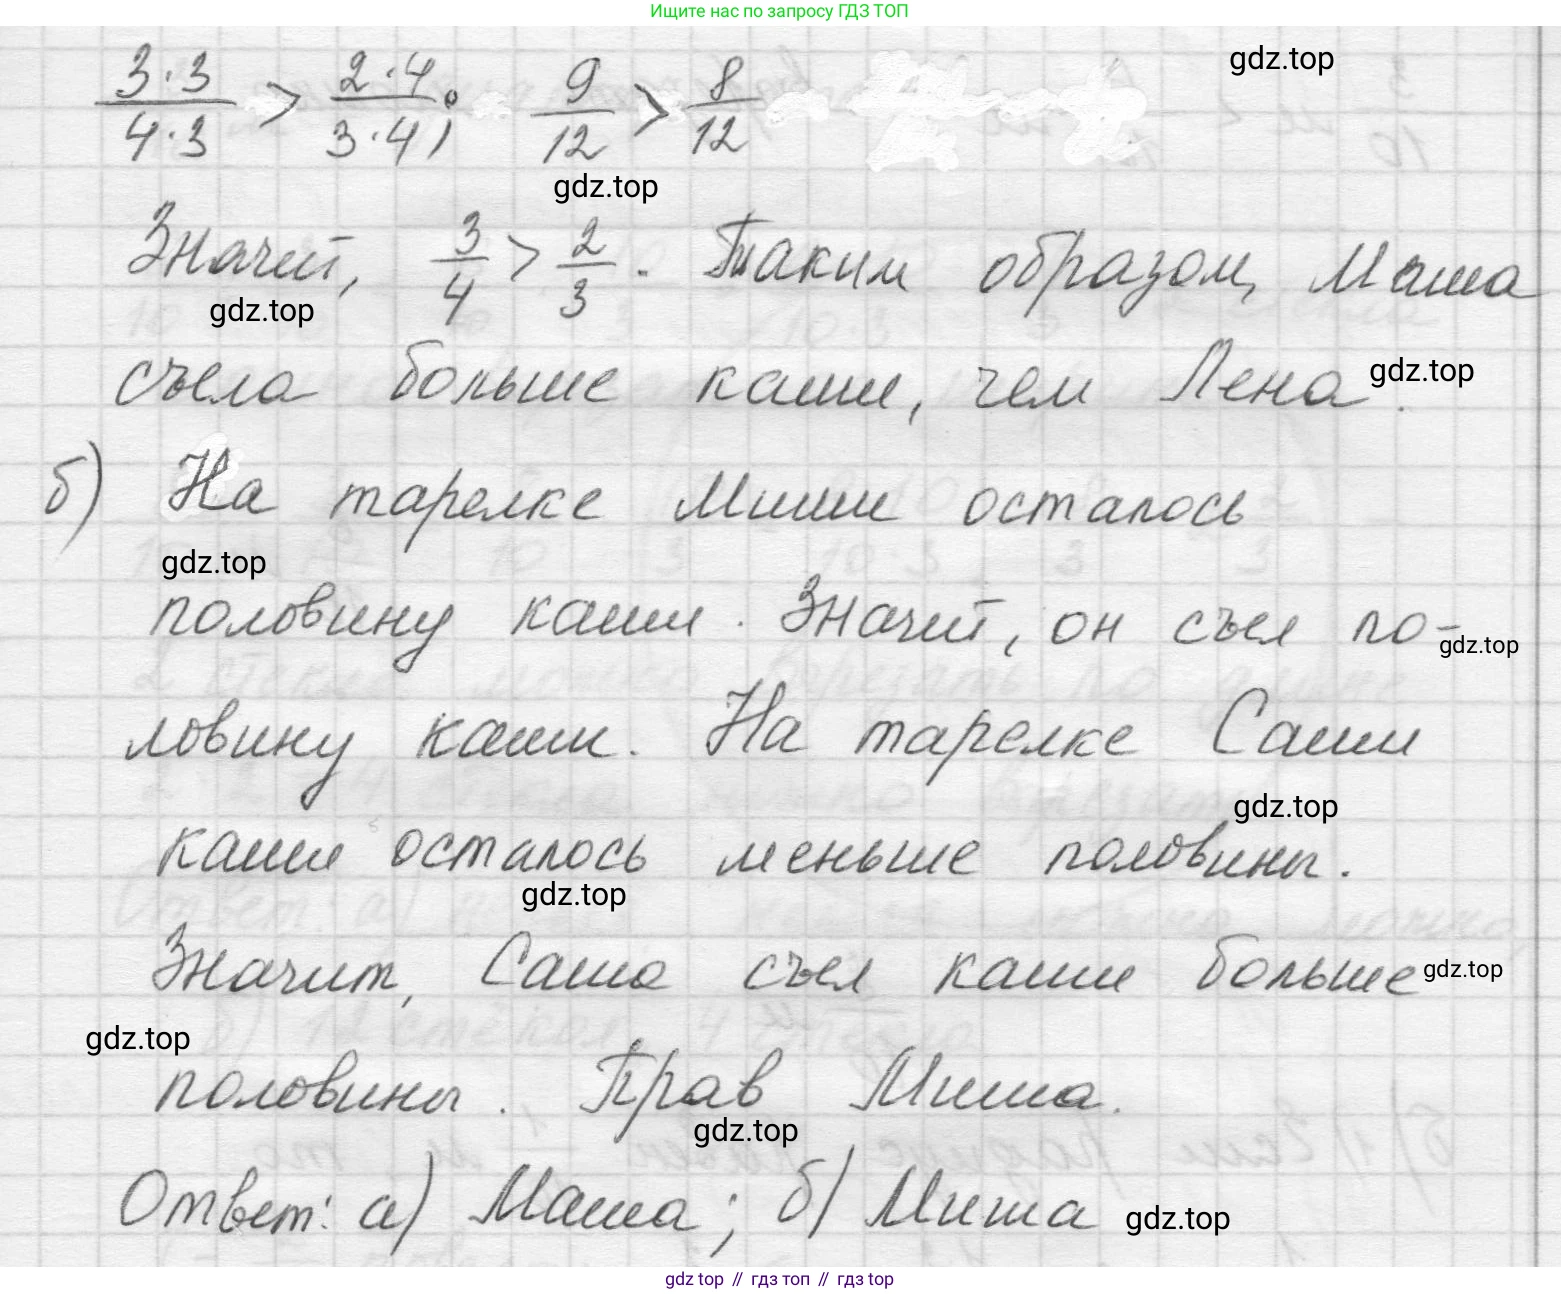 Ищите нас по запросу ГДЗ ТОП
gdz.top
3·3/4·3 > 2·4/3·4; 9/12 > 8/12
gdz.top
Значит, 3/4 > 2/3. Таким образом, Маша
gdz.top
съела больше каши, чем Лена.
gdz.top
б) На тарелке Миши осталось
gdz.top
половину каши. Значит, он съел по-
gdz.top
ловину каши. На тарелке Саши
gdz.top
каши осталось меньше половины.
gdz.top
Значит, Саша съел каши больше
gdz.top
gdz.top
половины. Прав Миша.
gdz.top
Ответ: а) Маша; б) Миша
gdz.top
gdz top // гдз топ // гдз top